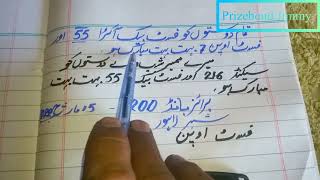 Prizebond Jimmy
تمام دوستوں کو فسٹ بیک آکڑا 55 اور
فسٹ اوپن 7 بہت بہت مبارک ہو۔
میرے ممبر شپ والے دوستوں کو
سیکنڈ 216 اور فسٹ بیک 55 بہت بہت
مبارک ہو۔
پرائز بانڈ 200 - 15 مارچ
شہر لاہور
فسٹ اوپن